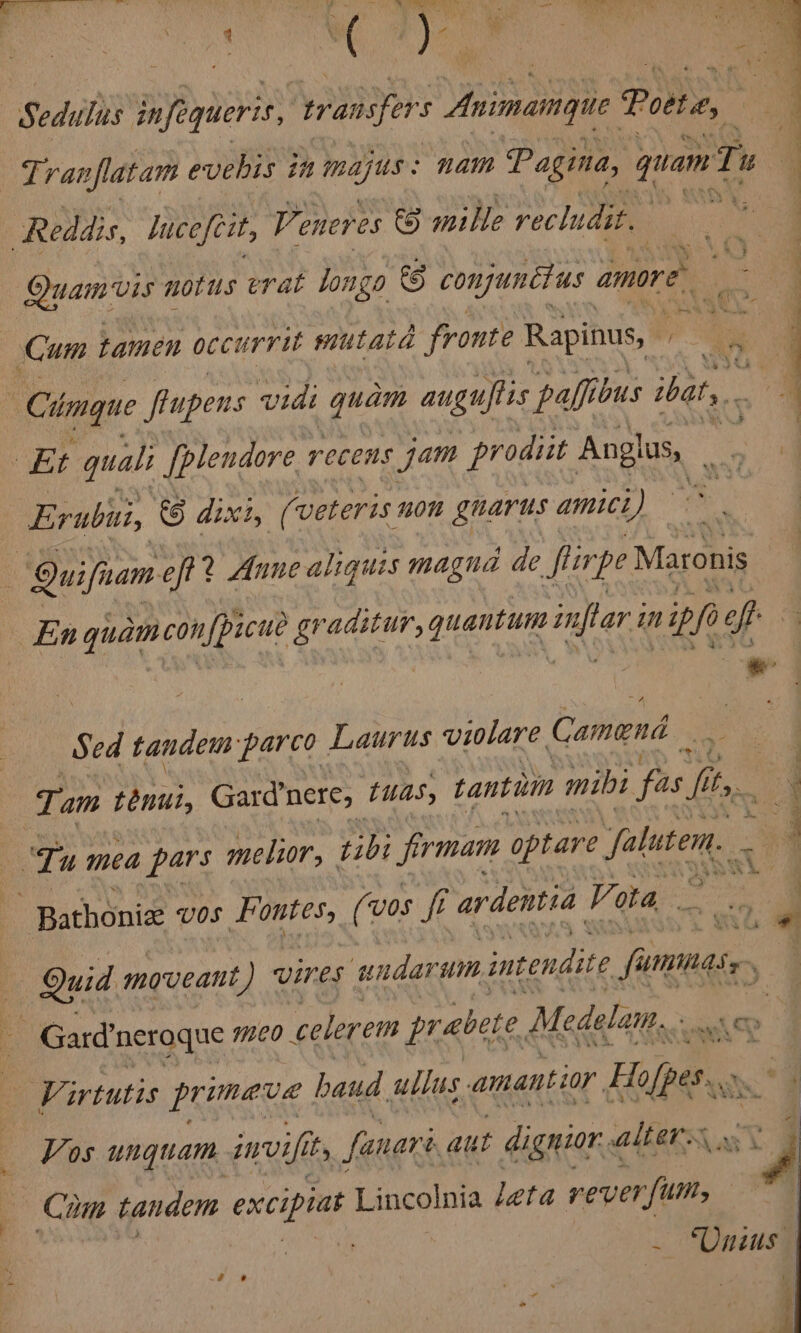 ( )
Sedulus inſequeris, transfers Animamque Poëtæ,
Tranſlatam evehis in majus: nam Pagina, quam Tu
Reddis, luceſcit, Veneres & mille recludit.
Quamvis notus erat longo & conjunctus amore
Cum tamen occurrit mutatâ fronte Rapinus,
Cúmque ſtupens vidi quàm auguſtis paſſibus ibat,
Et quali ſplendore recens jam prodiit Anglus,
Erubui, & dixi, (veteris non gnarus amici)
Quiſnam eſt? Anne aliquis magnâ de ſtirpe Maronis
En quàm conſpicuè graditur, quantum inſtar in ipſo eſt.
Sed tandem parco Laurus violare Camœnâ
Tam tènui, Gard'nere, tuas, tantùm mihi fas ſit,
Tu mea pars melior, tibi firmam optare ſalutem.
Bathoniæ vos Fontes, (vos ſi ardentia Vota
Quid moveant) vires undarum intendite ſummas,
Gard'neroque meo celerem præbete Medelam.
Virtutis primævæ haud ullus amantior Hoſpes
Vos unquam inviſit, ſanari aut dignior alter.
Cùm tandem excipiat Lincolnia læta reverſum,
Unius